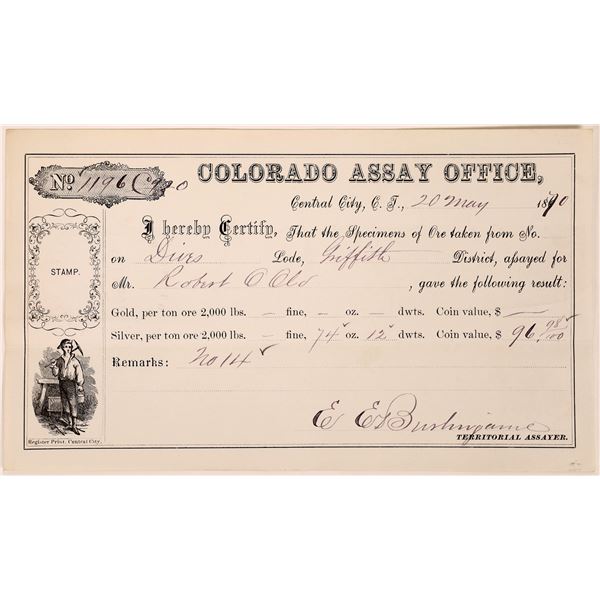 No. 11196
COLORADO ASSAY OFFICE,
Central City, C. T., 20 May 1870
I hereby Certify, That the Specimens of Ore taken from No.
on Dives Lode, Griffith District, assayed for
Mr. Robert O Old, gave the following result:
STAMP.
Gold, per ton ore 2,000 lbs. — fine, — oz. — dwts. Coin value, $ —
Silver, per ton ore 2,000 lbs. — fine, 74 oz. 12 dwts. Coin value, $ 96 98/100
Remarks: No 14
E E Burlingame
TERRITORIAL ASSAYER.
Register Print. Central City.